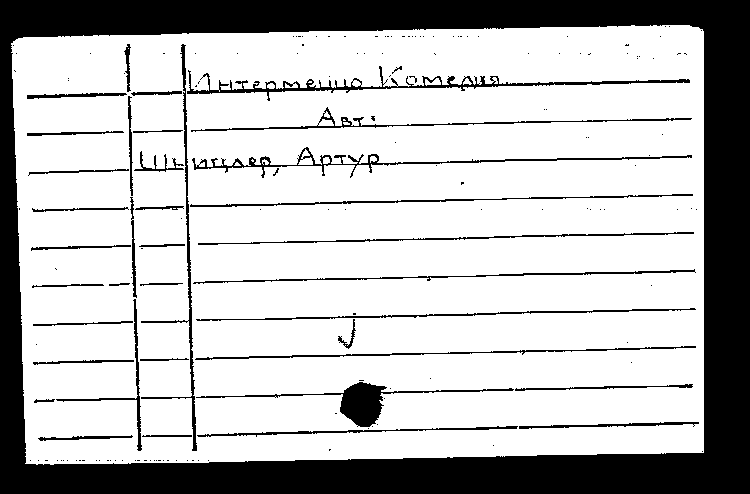 Интермеццо Комедия
Авт:
Шницлер, Артур